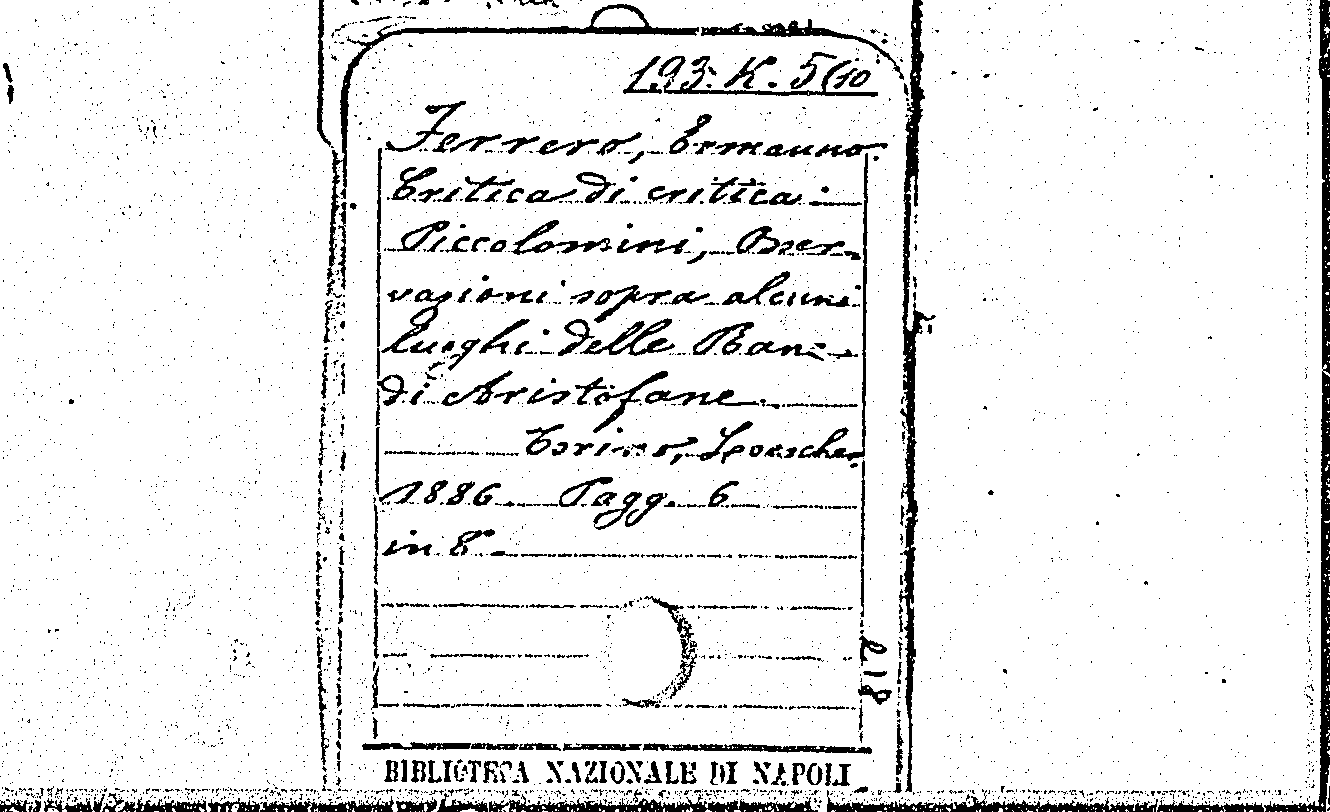 193. K. 5(10
Ferrero, Ermanno.
Critica di critica:
Piccolomini, Osser-
vazioni sopra alcuni
luoghi delle Rane
di Aristofane.
Torino, Loescher
1886. Pagg. 6
in 8°.
BIBLIOTECA NAZIONALE DI NAPOLI